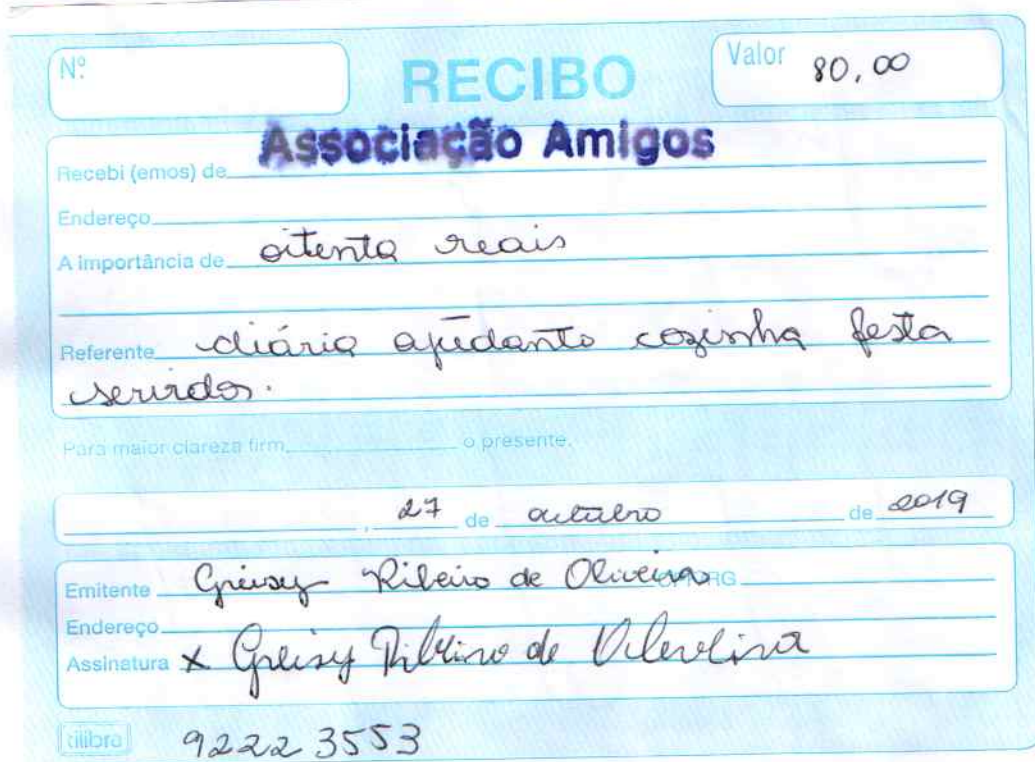 Nº RECIBO Valor 80,00
Recebi (emos) de Associação Amigos
Endereço
A importância de oitenta reais
Referente diária ajudante cozinha festa
servidos.
Para maior clareza firm o presente.
, 27 de outubro de 2019
Emitente Greisy Ribeiro de Oliveira RG
Endereço
Assinatura x Greisy Ribeiro de Oliveira
tilibra 9222 3553